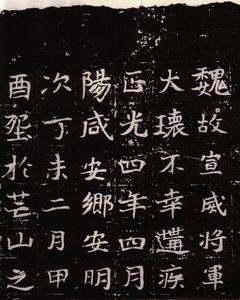 魏故宣威將軍
大壞不幸遘疾
正光四年四月
陽咸安鄉安明
次丁未二月甲
酉於芒山之